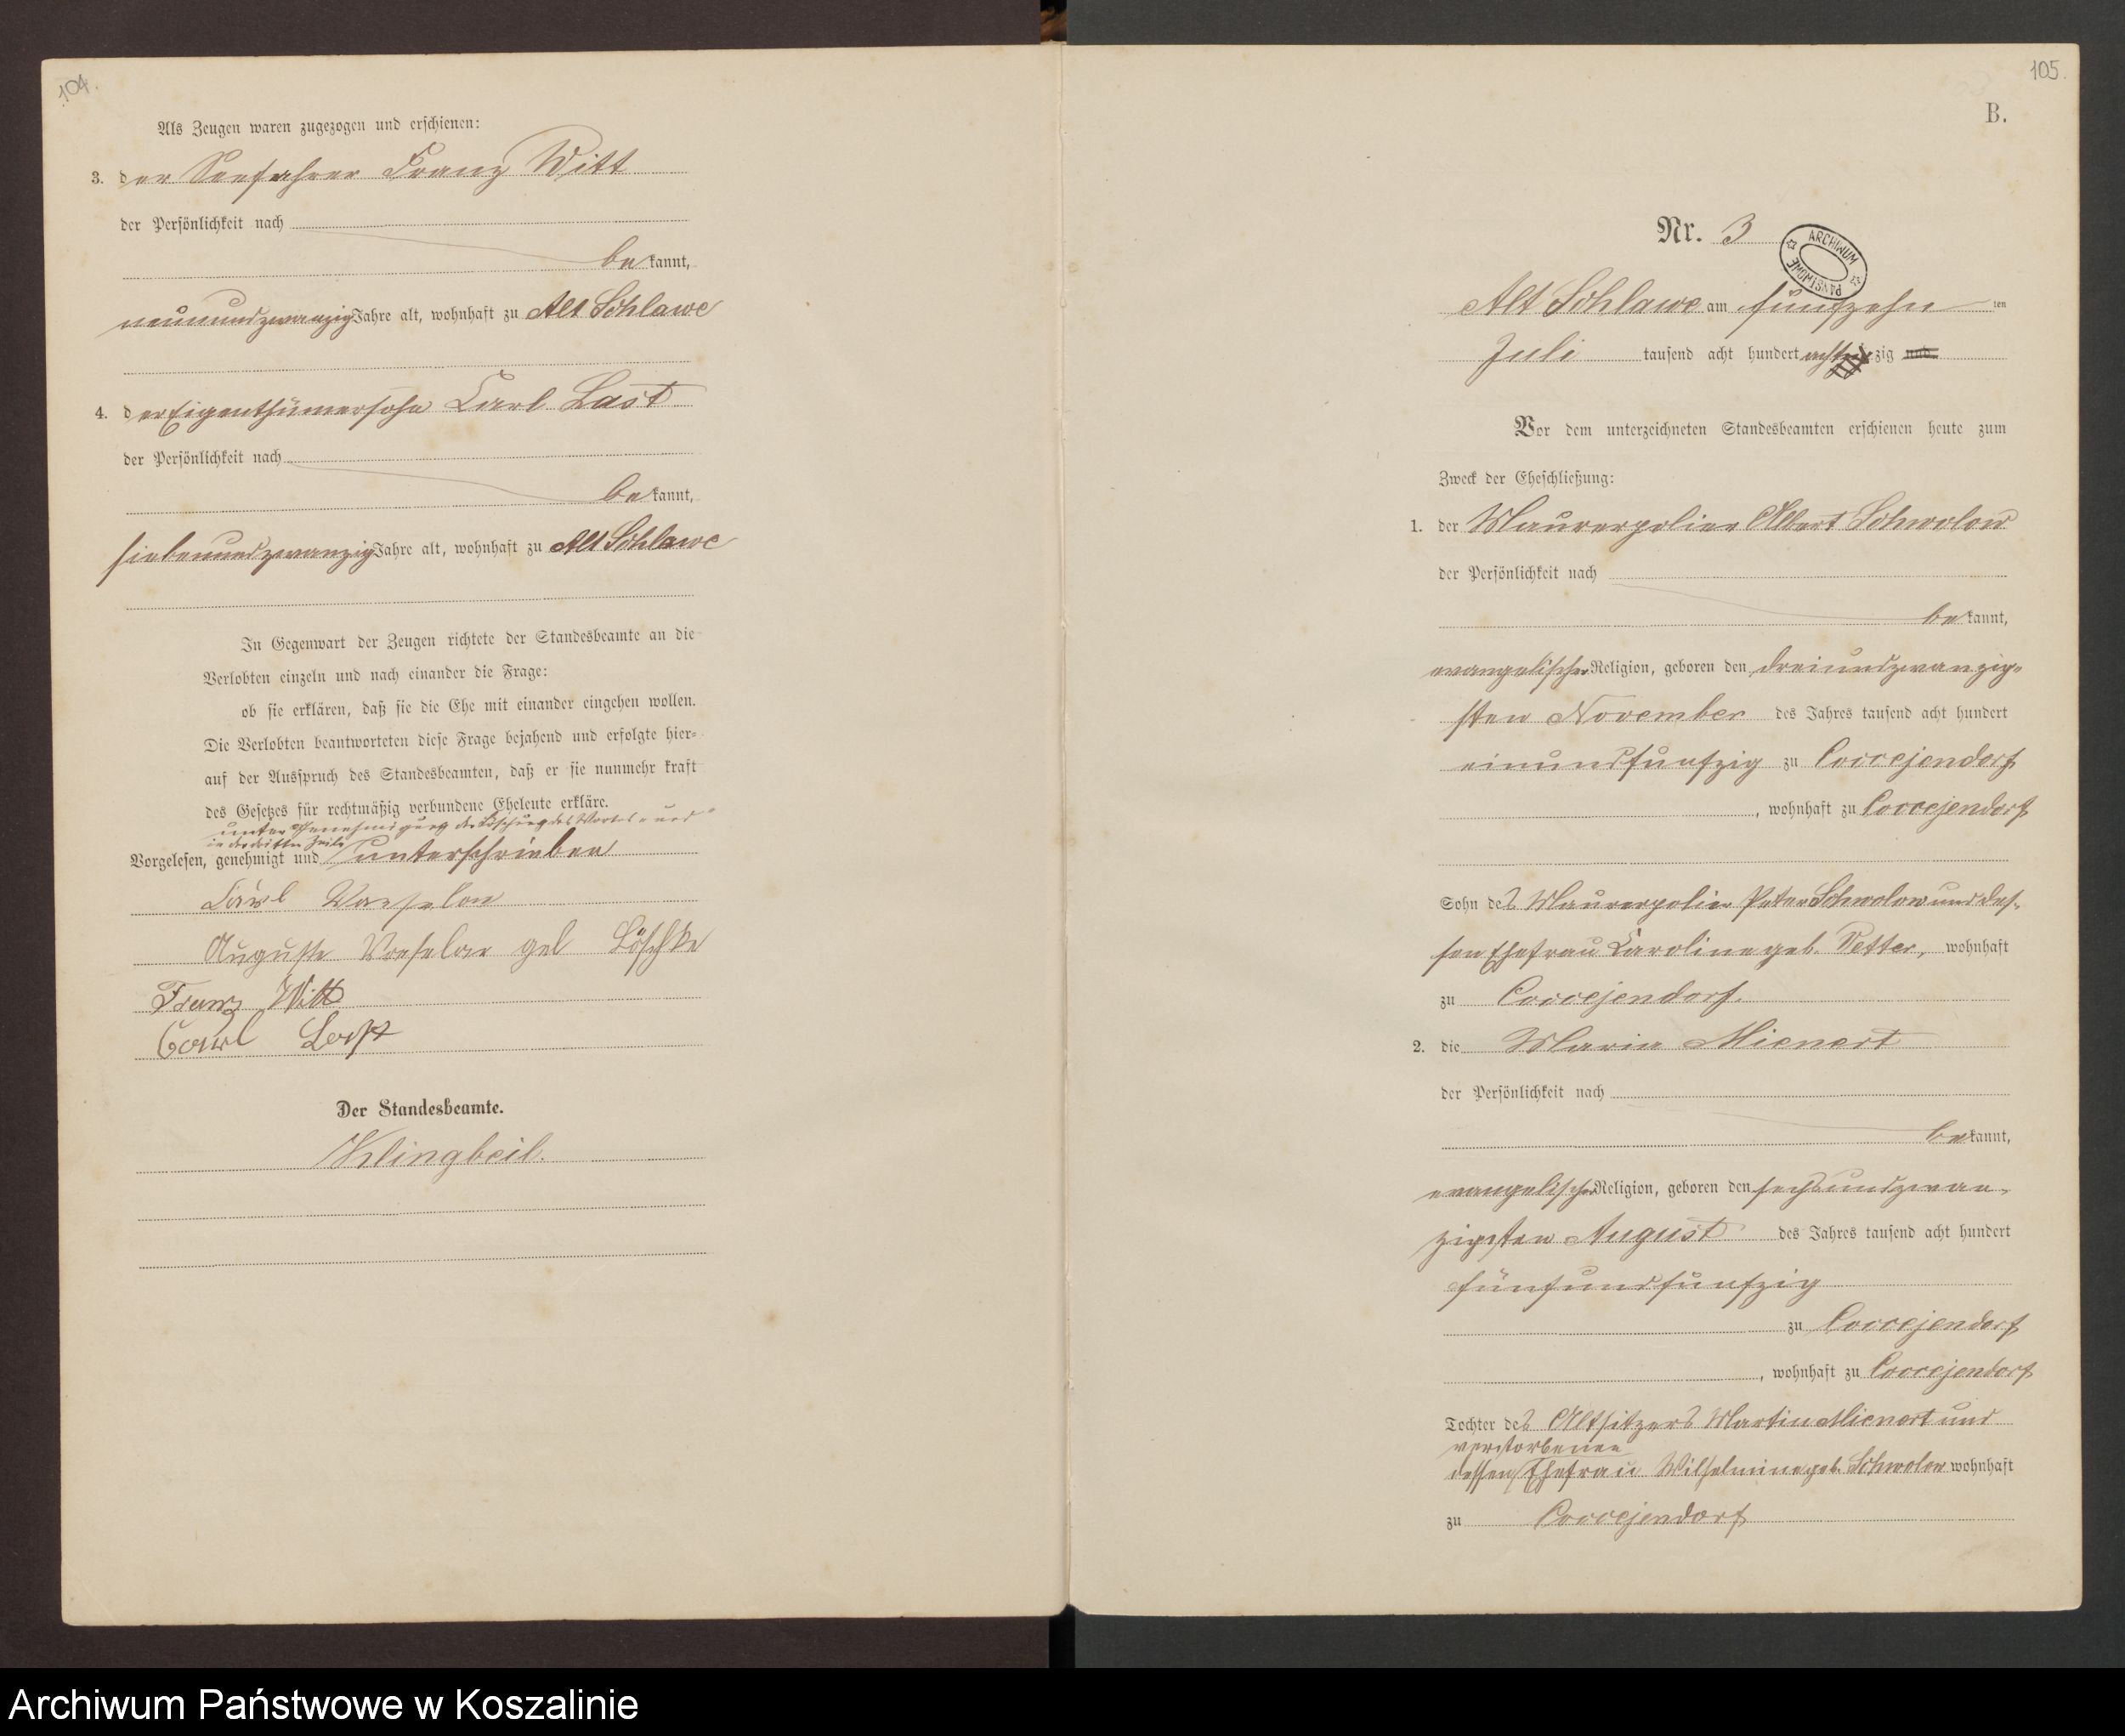 104.
Als Zeugen waren zugezogen und erschienen:
3. der Seefahrer Franz Witt
der Persönlichkeit nach
bekannt,
neunundzwanzig Jahre alt, wohnhaft zu Alt Schlawe
4. der Eigenthümersohn Carl Last
der Persönlichkeit nach
bekannt,
siebenundzwanzig Jahre alt, wohnhaft zu Alt Schlawe
In Gegenwart der Zeugen richtete der Standesbeamte an die
Verlobten einzeln und nach einander die Frage:
ob sie erklären, daß sie die Ehe mit einander eingehen wollen.
Die Verlobten beantworteten diese Frage bejahend und erfolgte hier-
auf der Ausspruch des Standesbeamten, daß er sie nunmehr kraft
des Gesetzes für rechtmäßig verbundene Eheleute erkläre.
unter Genehmigung der Löschung des Wortes "und"
in der dritten Zeile
Vorgelesen, genehmigt und unterschrieben
Carl
Auguste geb Löschke
Franz Witt
Carl Last
Der Standesbeamte.
Klingbeil.
105.
B.
Nr. 3
ARCHIWUM PAŃSTWOWE
Alt Schlawe am fünfzehn ten
Juli tausend acht hundert achtzig und
Vor dem unterzeichneten Standesbeamten erschienen heute zum
Zweck der Eheschließung:
1. der Maurerpolier Albert Schwolow
der Persönlichkeit nach
bekannt,
evangelischer Religion, geboren den dreiundzwanzig-
sten November des Jahres tausend acht hundert
einundfunfzig zu Coccejendorf
, wohnhaft zu Coccejendorf
Sohn des Maurerpolier Peter Schwolow und des-
sen Ehefrau Caroline geb. Vetter, wohnhaft
zu Coccejendorf.
2. die Maria Mienert
der Persönlichkeit nach
bekannt,
evangelischer Religion, geboren den sechsundzwan-
zigsten August des Jahres tausend acht hundert
fünfundfunfzig
zu Coccejendorf
, wohnhaft zu Coccejendorf
Tochter des Altsitzers Martin Mienert und
verstorbenen
dessen Ehefrau Wilhelmine geb. Schwolow wohnhaft
zu Coccejendorf
Archiwum Państwowe w Koszalinie